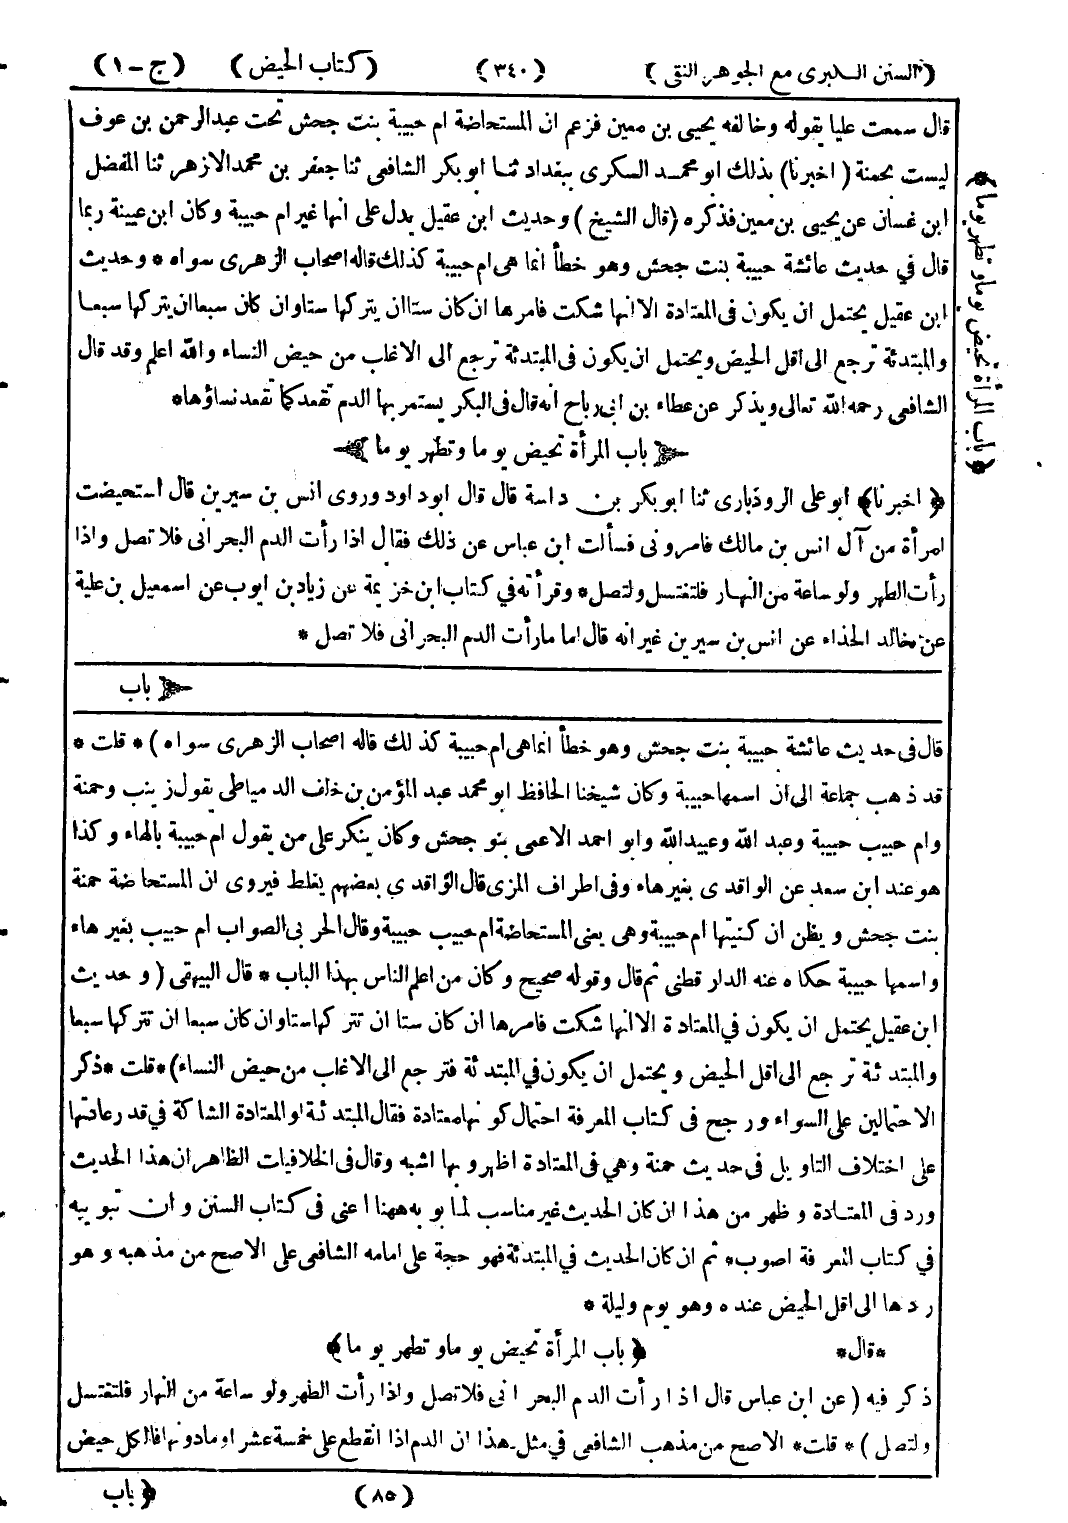 (السنن الكبرى مع الجوهر النقى) (٣٤٠) (كتاب الحيض) (ج - ١)
قال سمعت عليا يقوله وخالفه يحيى بن معين فزعم ان المستحاضة ام حبيبة بنت جحش تحت عبدالرحمن بن عوف
ليست بحمنة (اخبرنا) بذلك ابو محمد السكرى ببغداد ثنا ابوبكر الشافعى ثنا جعفر بن محمد الازهر ثنا المفضل
ابن غسان عن يحيى بن معين فذكره (قال الشيخ) وحديث ابن عقيل يدل على انها غير ام حبيبة وكان ابن عيينة ربما
قال في حديث عائشة حبيبة بنت جحش وهو خطأ انما هى ام حبيبة كذلك قاله اصحاب الزهرى سواه * وحديث
ابن عقيل يحتمل ان يكون فى المعتادة الا انها شكت فامرها ان كان ستا ان يتركها ستا وان كان سبعا ان يتركها سبعا
والمبتدئة ترجع الى اقل الحيض ويحتمل ان يكون فى المبتدئة ترجع الى الاغلب من حيض النساء والله اعلم وقد قال
الشافعى رحمه الله تعالى ويذكر عن عطاء بن ابى رباح انه قال فى البكر يستمر بها الدم تقعد كما تقعد نساؤها*
باب المرأة تحيض يوما وتطهر يوما
﴿اخبرنا﴾ ابو على الروذبارى ثنا ابوبكر بن داسة قال قال ابوداود وروى انس بن سيرين قال استحيضت
امرأة من آل انس بن مالك فامرونى فسألت ابن عباس عن ذلك فقال اذا رأت الدم البحرانى فلا تصل واذا
رأت الطهر ولو ساعة من النهار فلتغتسل ولتصل* وقرأته في كتاب ابن خزيمة عن زياد بن ايوب عن اسمعيل بن علية
عن خالد الحذاء عن انس بن سيرين غير انه قال اما ما رأت الدم البحرانى فلا تصل *
باب
قال فى حديث عائشة حبيبة بنت جحش وهو خطأ انماهى ام حبيبة كذلك قاله اصحاب الزهرى سواه) * قلت *
قد ذهب جماعة الى ان اسمها حبيبة وكان شيخنا الحافظ ابو محمد عبد المؤمن بن خلف الدمياطى يقول زينب وحمنة
وام حبيب حبيبة وعبد الله وعبيدالله وابو احمد الاعمى بنو جحش وكان ينكر على من يقول ام حبيبة بالهاء وكذا
هو عند ابن سعد عن الواقدى بغير هاء وفى اطراف المزى قال الواقدى بعضهم يغلط فيروى ان المستحاضة حمنة
بنت جحش ويظن ان كنيتها ام حبيبة وهى يعنى المستحاضة ام حبيب حبيبة وقال الحربى الصواب ام حبيب بغير هاء
واسمها حبيبة حكاه عنه الدار قطنى ثم قال وقوله صحيح وكان من اعلم الناس بهذا الباب * قال البيهقى (وحديث
ابن عقيل يحتمل ان يكون في المعتادة الا انها شكت فامرها ان كان ستا ان تتركها ستا وان كان سبعا ان تتركها سبعا
والمبتدئة ترجع الى اقل الحيض ويحتمل ان يكون في المبتدئة فترجع الى الاغلب من حيض النساء) * قلت * ذكر
الاحتمالين على السواء ورجح فى كتاب المعرفة احتمال كونها معتادة فقال المبتدئة او المعتادة الشاكة في قدر عادتها
على اختلاف التاويل فى حديث حمنة وهي فى المعتادة اظهر وبها اشبه وقال فى الخلافيات الظاهر ان هذا الحديث
ورد فى المعتادة وظهر من هذا ان كان الحديث غير مناسب لما بوبه ههنا اعنى فى كتاب السنن وان تبويبه
في كتاب المعرفة اصوب* ثم ان كان الحديث في المبتدئة فهو حجة على امامه الشافعى على الاصح من مذهبه وهو
ردها الى اقل الحيض عنده وهو يوم وليلة *
*قال* ﴿باب المرأة تحيض يوما وتطهر يوما﴾
ذكر فيه (عن ابن عباس قال اذا رأت الدم البحرانى فلا تصل واذا رأت الطهر ولو ساعة من النهار فلتغتسل
ولتصل) * قلت* الاصح من مذهب الشافعى في مثل هذا ان الدم اذا انقطع على خمسة عشر او ما دونها فالكل حيض
(٨٥) ﴿باب
﴿باب المرأة تحيض يوما وتطهر يوما﴾